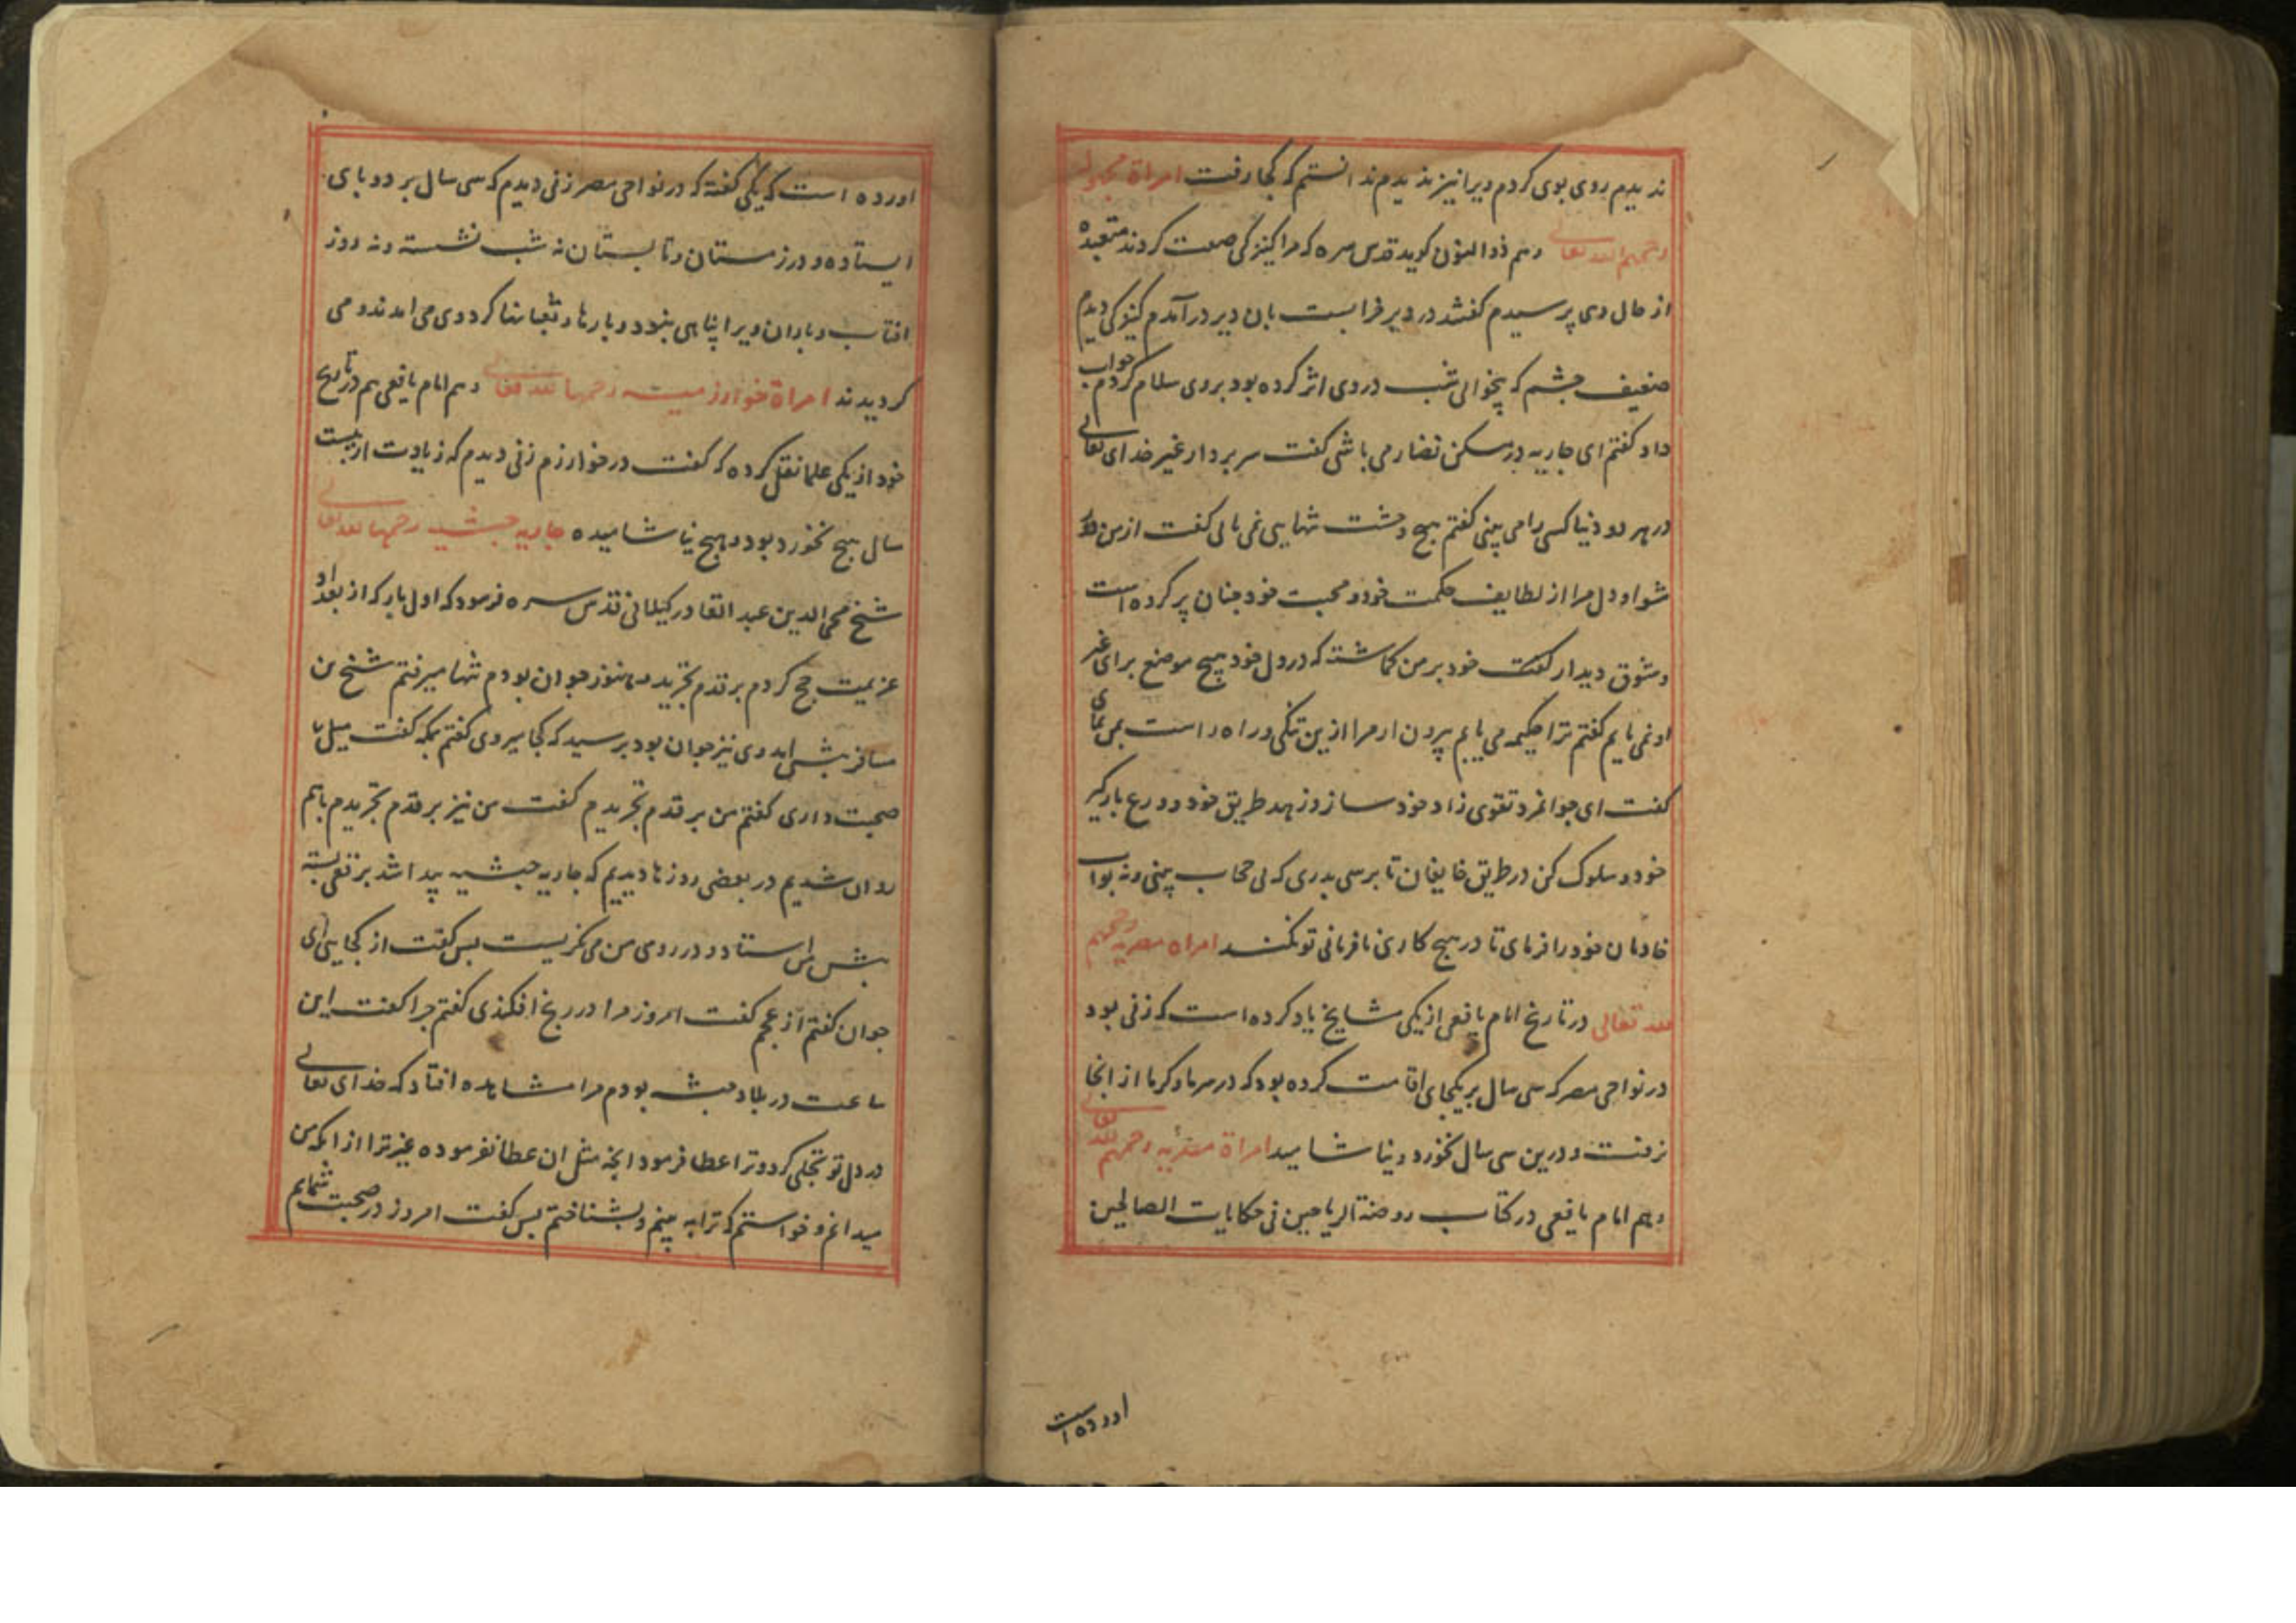 ندیدم روی بوی کردم ویرا نیز ندیدم ندانستم که کجا رفت امراة مجهوله
رحمهم الله تعالی وهم ذوالنون کوید قدس سره که مرا کنیزکی صفت کردند متعبده
از حال وی پرسیدم کفتند در دیر خرابست بان دیر درآمدم کنیزکی دیدم
ضعیف جشم که بیخوابی شب در وی اثر کرده بود بروی سلام کردم جواب
داد کفتم ای جاریه در مسکن نصار می باشی کفت سر بردار غیر خدای تعالی
در هر دو دنیا کسی را می بینی کفتم هیج وحشت تنهایی نمی یابی کفت از من دور
شو او دل مرا از لطایف حکمت خود و محبت خود جنان پر کرده است
و شوق دیدار خود بر من کماشته که در دل خود هیج موضع برای غیر
او نمی یابم کفتم ترا حکیمه می یابم بیرون ار مرا ازین تنکی و راه راست بمن نمای
کفت ای جوانمرد تقوی زاد خود ساز و زهد طریق خود و ورع بارکیر
خود و سلوک کن در طریق خایفان تا برسی بدری که نی حجاب بینی و نه بواب
خادمان خود را فرمای تا در هیج کاری نافرمانی تو نکنند امراه مصریه رحمهم
الله تعالی در تاریخ امام یافعی از یکی مشایخ یاد کرده است که زنی بود
در نواحی مصر که سی سال بر یکجای اقامت کرده بود که در سرما و کرما از انجا
نرفت و درین سی سال نخورد و نیاشامید امراة مصریه رحمهم الله تعالی
وهم امام یافعی در کتاب روضة الریاحین فی حکایات الصالحین
اورده است
اورده است که یکی کفته که در نواحی مصر زنی دیدم که سی سال بر دو پای
ایستاده و در زمستان و تابستان نه شب نشسته و نه روز
افتاب و باران ویرا پناهی نبود و مارها و ثعبانها کرد وی می امدند و می
کردیدند امراة خوارزمیه رحمها الله تعالی وهم امام یافعی هم در تاریخ
خود از یکی علما نقل کرده که کفت در خوارزم زنی دیدم که زیادت از بیست
سال هیج نخورد بود و هیج نیاشامیده جاریه حبشیه رحمها الله تعالی
شیخ محی الدین عبدالقادر کیلانی قدس سره فرمود که اول بار که از بغداد
عزیمت حج کردم بر قدم تجرید هنوز جوان بودم تنها میرفتم شیخ من
مسافر پیش امد وی نیز جوان بود برسید که کجا میروی کفتم بمکه کفت میل با
صحبت داری کفتم من بر قدم تجریدم کفت من نیز بر قدم تجریدم باهم
روان شدیم در بعضی روزها دیدیم که جاریه حبشیه پیدا شد برقعی بسته
پیش من استاد و در روی من می نکریست بس کفت از کجایی ای
جوان کفتم از عجم کفت امروز مرا در رنج افکندی کفتم جرا کفت این
ساعت در بلاد حبشه بودم مرا مشاهده افتاد که خدای تعالی
در دل تو تجلی کرد و ترا عطا فرمود انجه مثل ان عطا نفرموده غیر ترا از انکه من
میدانم و خواستم که ترا به بینم و بشناختم بس کفت امروز در صحبت شمایم